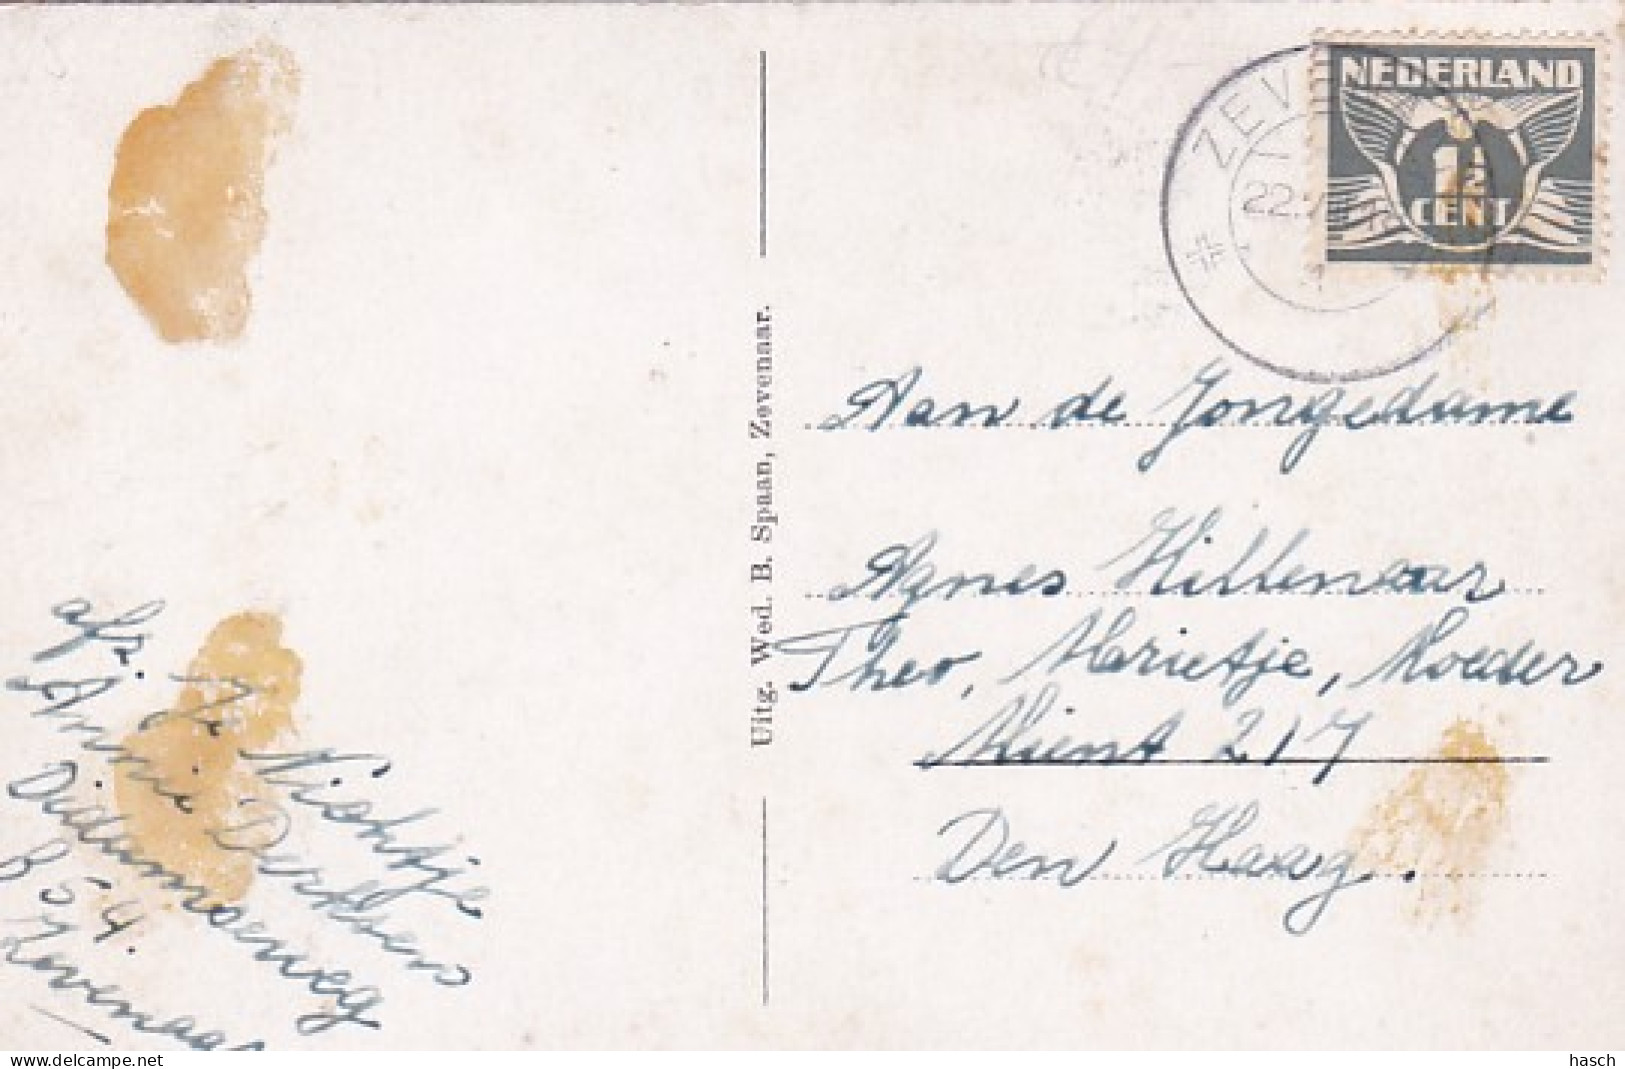 afz. Je Nichtje
Annie Derksen
Didamseweg
B 54.
Zevenaar
Uitg. Wed. B. Spaan, Zevenaar.
NEDERLAND
1 1/2
CENT
ZEVE
22.
1
Aan de Jongedame
Agnes Hillenaar
Theo, Marietje, Moeder
Mient 217
Den Haag.
www.delcampe.net
hasch